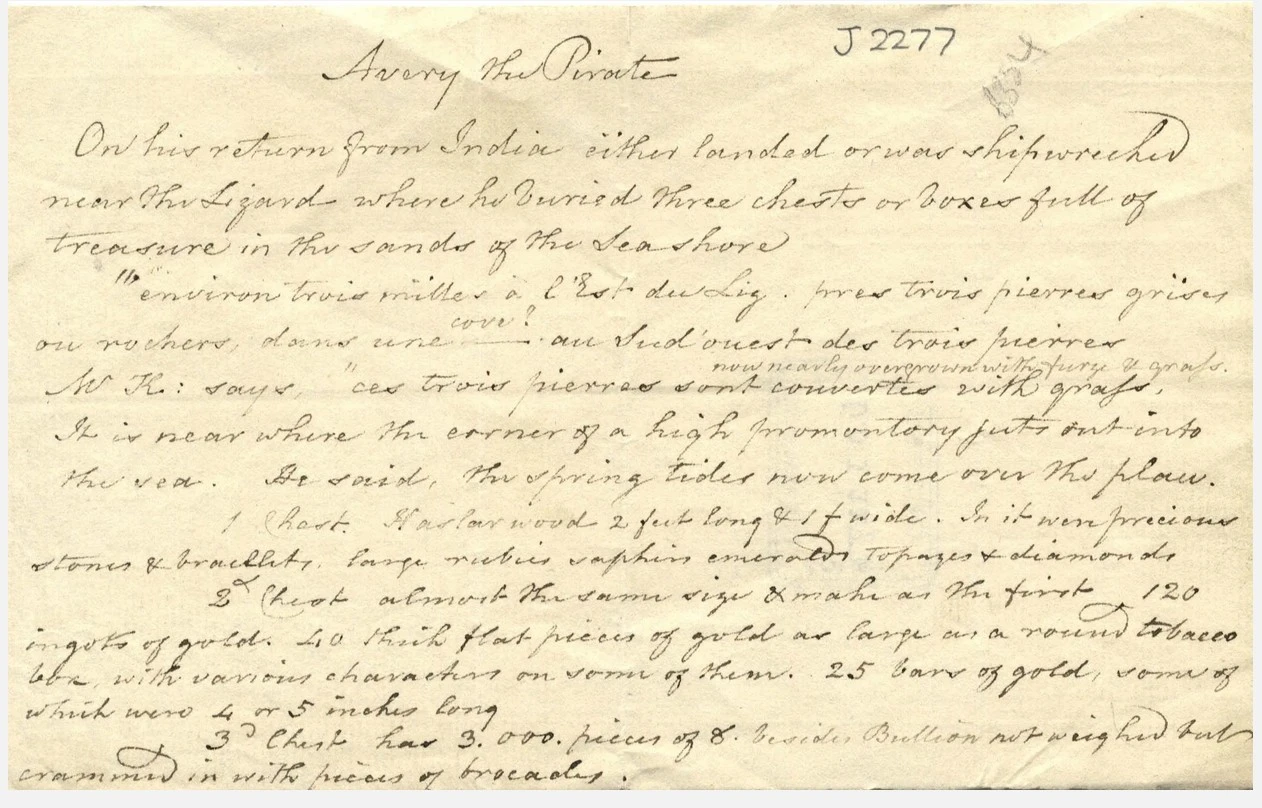 J 2277
Avery the Pirate
On his return from India either landed or was shipwrecked
near the Lizard where he buried three chests or boxes full of
treasure in the sands of the Sea shore
"environ trois milles à l'Est du Liz. pres trois pierres grises
cove?
ou rochers, dans une ——. au Sud'ouest des trois pierres
now nearly overgrown with furze & grass.
Mr K: says, "ces trois pierres sont couvertes with grass.
It is near where the corner of a high promontory juts out into
the sea. He said, the spring tides now come over the place.
1 Chest. Haslar wood 2 feet long & 1 f wide. In it were precious
stones & bracelets. large rubies saphirs emeralds topazes & diamonds
2d Chest almost the same size & make as the first 120
ingots of gold. 40 thick flat pieces of gold as large as a round tobacco
box, with various characters on some of them. 25 bars of gold, some of
which were 4 or 5 inches long
3d Chest has 3.000. pieces of 8. besides Bullion not weighed but
crammed in with pieces of brocades.